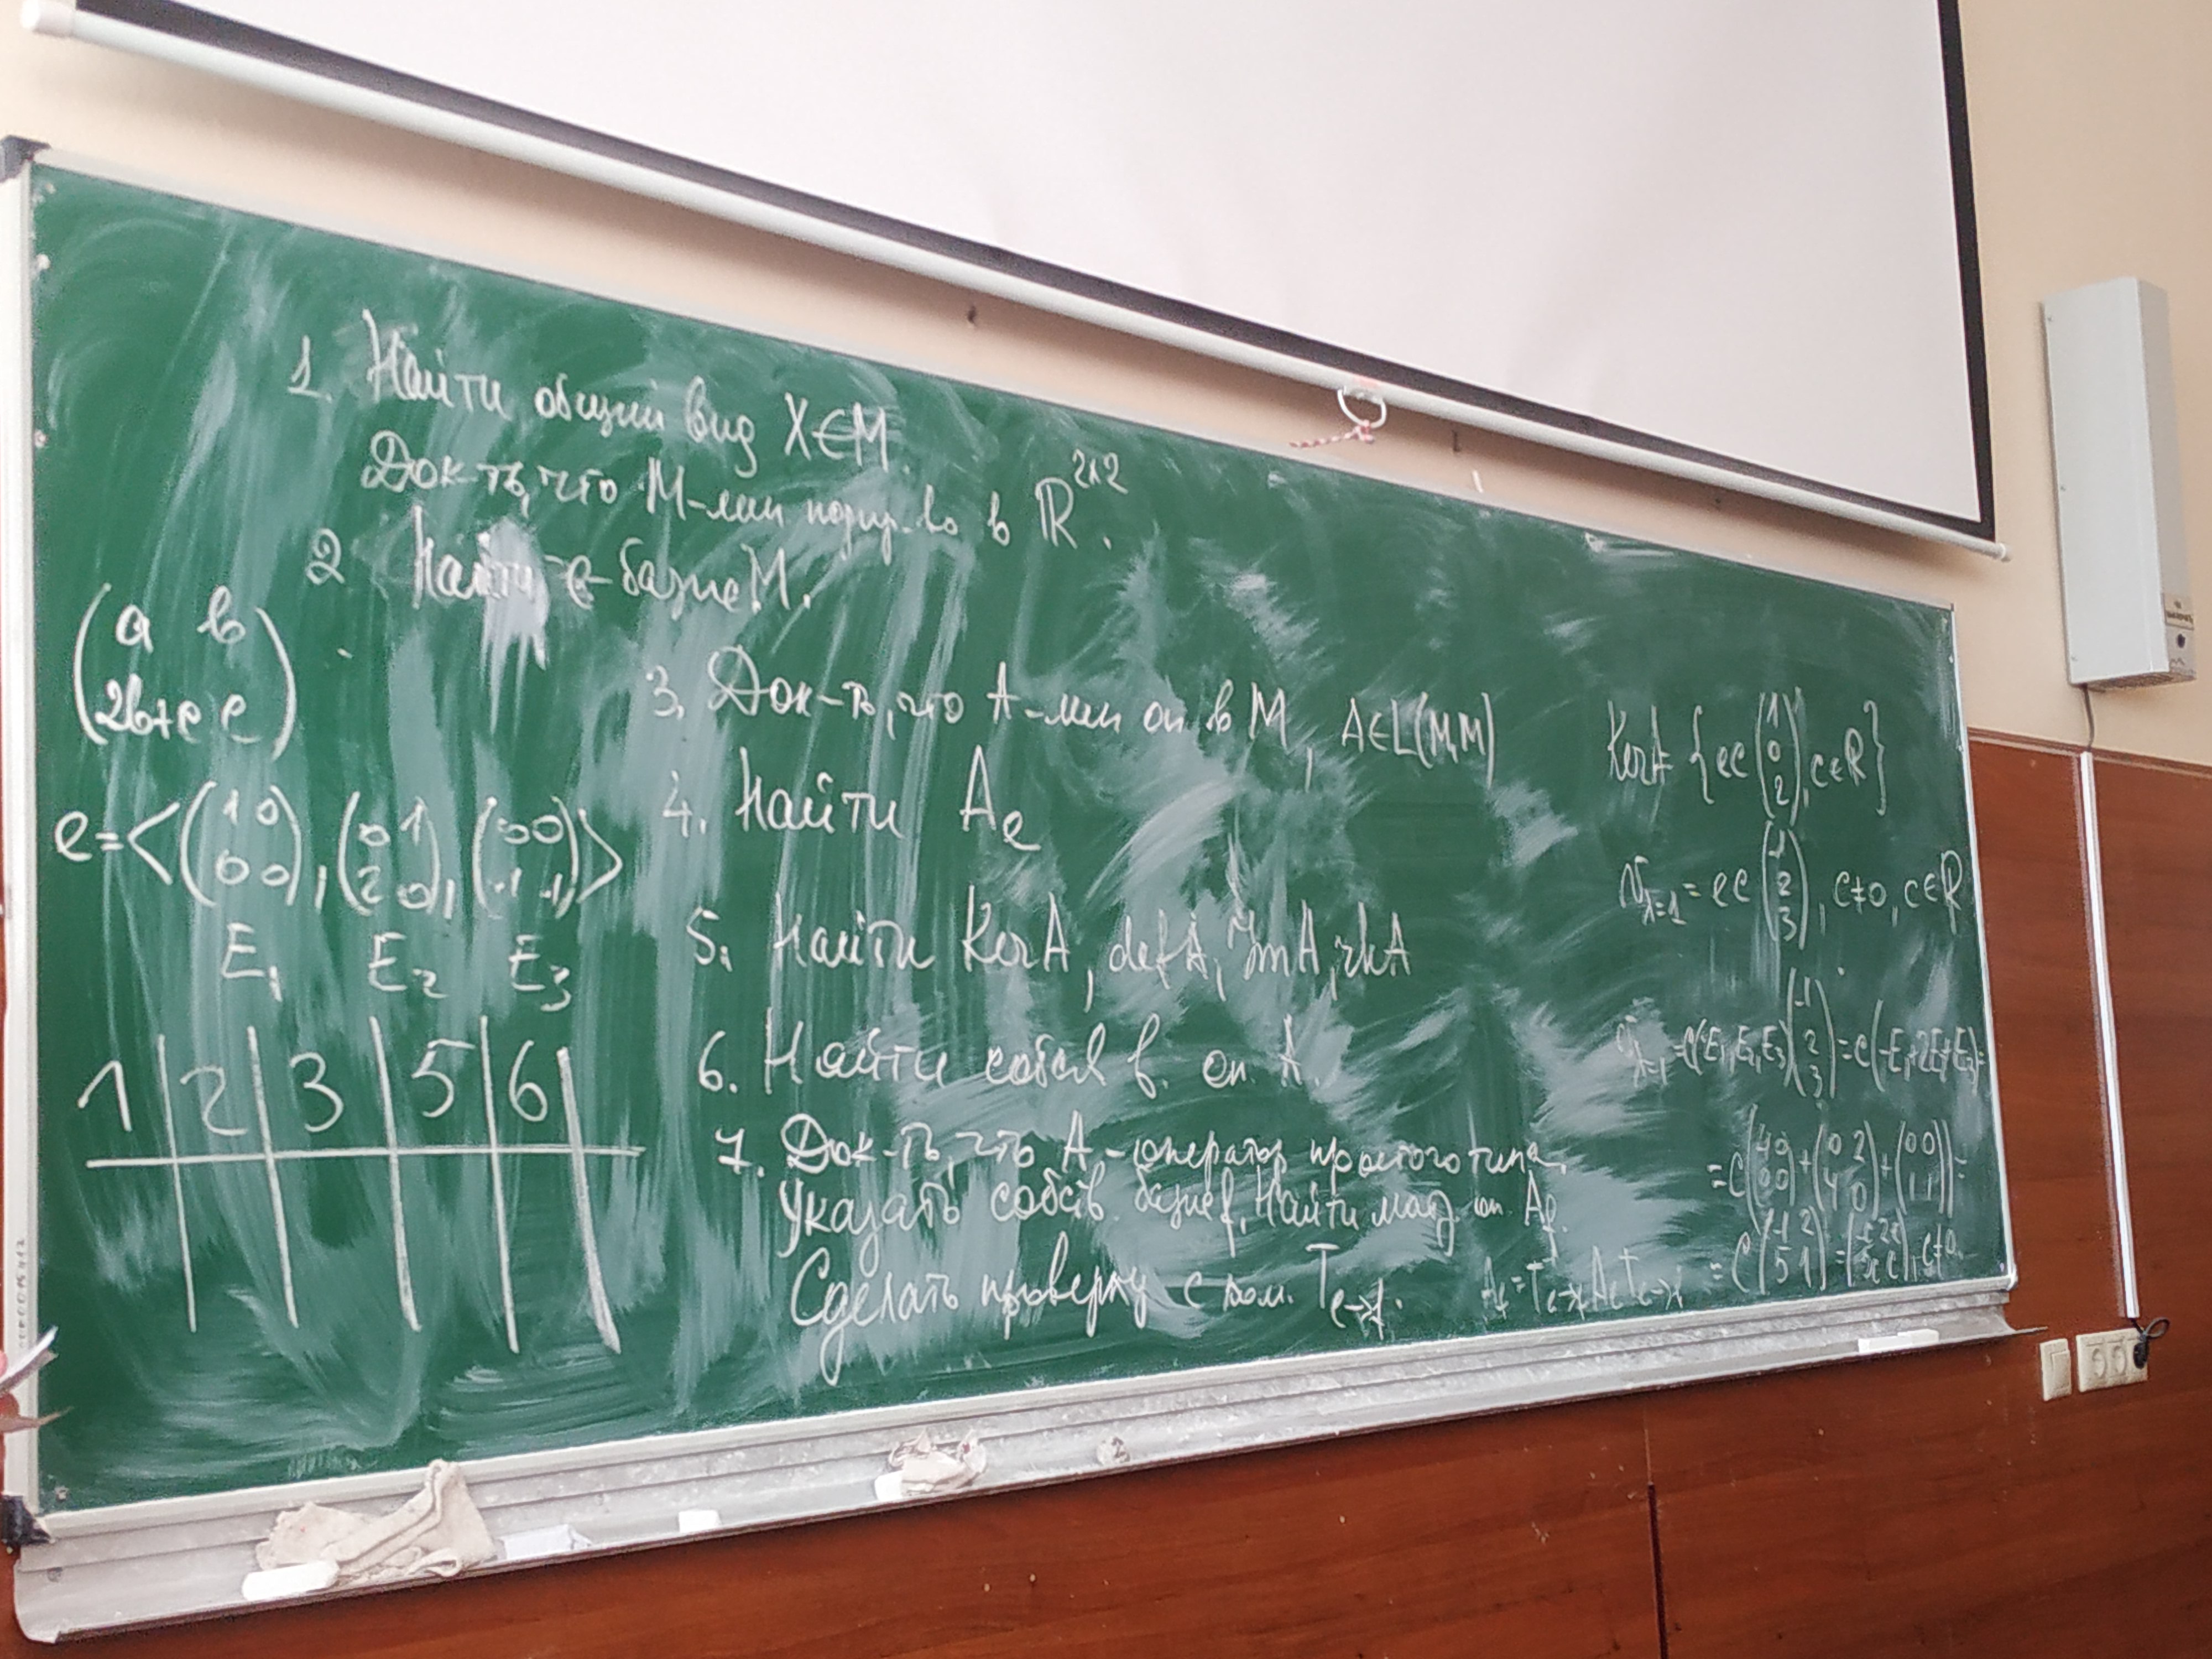 1. Найти общий вид X∈M.
Док-ть, что M-лин подпр-во в ℝ^{2×2}.
2 Найти e-базис M.
(a b; 2b+c c)
e=<(1 0; 0 0), (0 1; 2 0), (0 0; 1 1)>
E₁ E₂ E₃
1 | 2 | 3 | 5 | 6 |
3. Док-ть, что A-лин оп в M, A∈L(M,M)
4. Найти Aₑ
5. Найти KerA, defA, ImA, rkA
6. Найти собств в. оп. A.
7. Док-ть, что A-оператор простого типа.
Указать собств. базис f, Найти мат. оп. A_f.
Сделать проверку с пом. T_{e→f}. A_f = T⁻¹_{e→f} Aₑ T_{e→f}
KerA {ec(1; 0; 2), c∈ℝ}
v_{λ=1} = ec(-1; 2; 3), c≠0, c∈ℝ
v_{λ=1} = c(E₁, E₂, E₃)(-1; 2; 3) = c(-E₁+2E₂+E₃)=